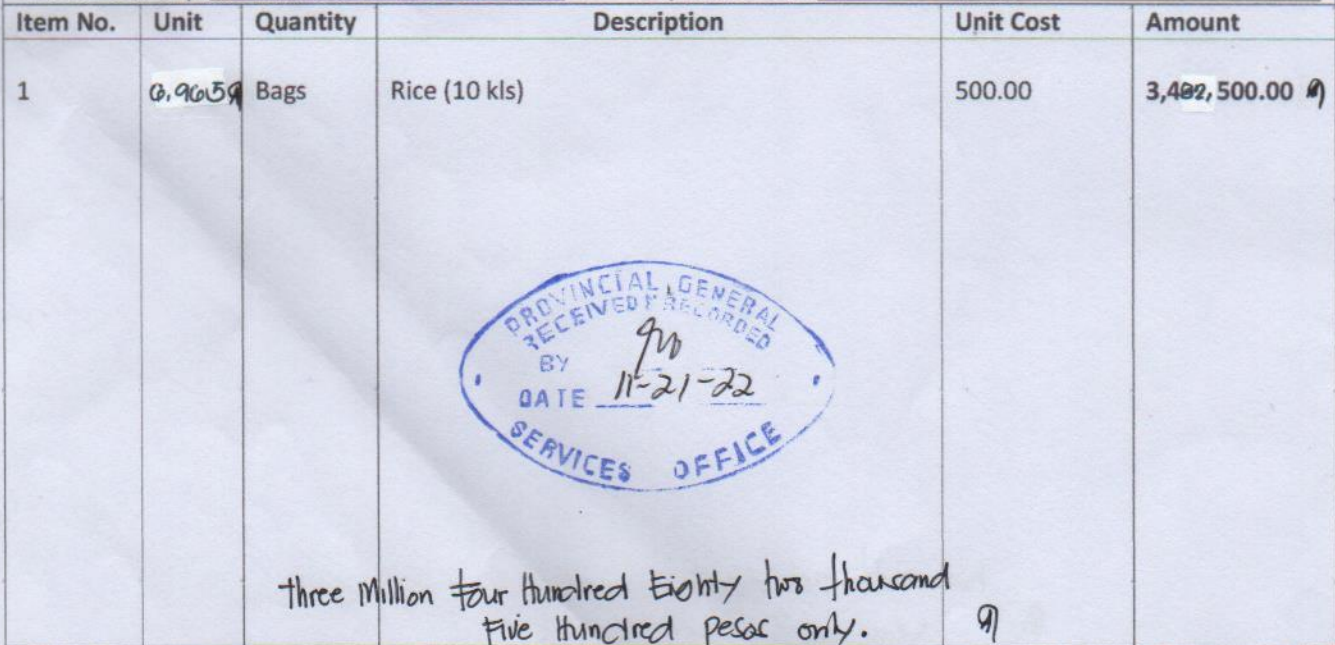 Item No. Unit Quantity Description Unit Cost Amount
1 6,965 Bags Rice (10 kls) 500.00 3,482,500.00
PROVINCIAL GENERAL
RECEIVED & RECORDED
BY
DATE 11-21-22
SERVICES OFFICE
three Million Four Hundred Eighty two thousand
Five Hundred pesos only.